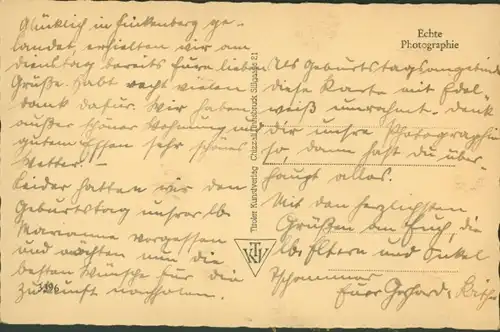 Glücklich in Finkenberg ge-
landet, erhielten wir am
Dienstag bereits Eure lieben
Grüße. Habt recht vielen
Dank dafür. Wir haben
außer schöner Wohnung und
gutem Essen sehr schönes
Wetter. –
Leider hatten wir den
Geburtstag unsrer lb.
Marianne vergessen
und möchten nun die
besten Wünsche für die
Zukunft nachholen.
3396
Tiroler Kunstverlag Chizzali Innsbruck Sillgasse 21
Echte
Photographie
Als Geburtstagsangebinde
diese Karte mit Edel-
weiß umrahmt. Denk
dir unsre Photographie
so, dann hast du über-
haupt alles.
Mit den herzlichsten
Grüßen an Euch, die
lb. Eltern und Onkel
Eure Gerhard &